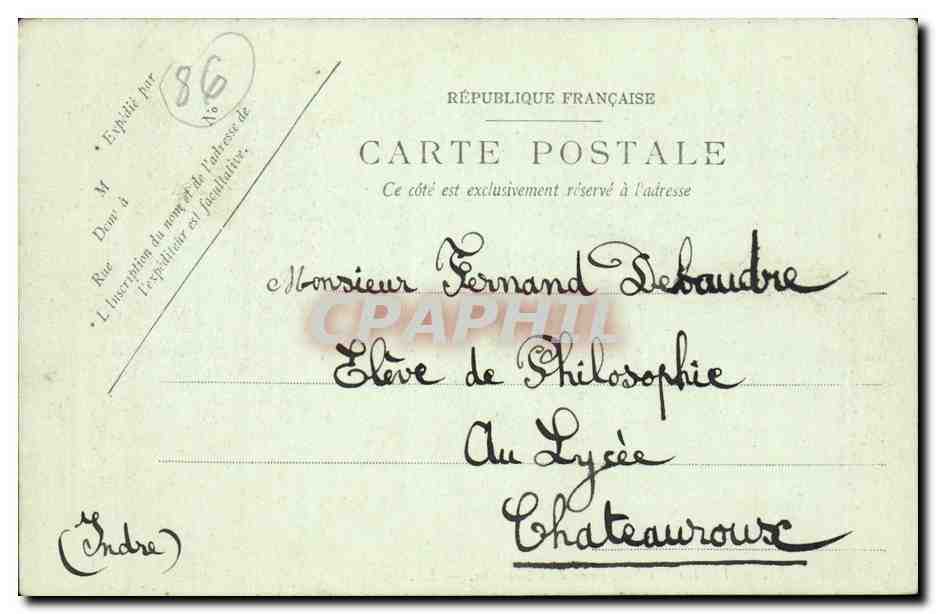 86
* Expédié par
No
M
Demt à
Rue
* L'Inscription du nom et de l'adresse de
l'expéditeur est facultative.
RÉPUBLIQUE FRANÇAISE
CARTE POSTALE
Ce côté est exclusivement réservé à l'adresse
Monsieur Fernand Debaudre
CPAPHIL
Elève de Philosophie
Au Lycée
Chateauroux
(Indre)